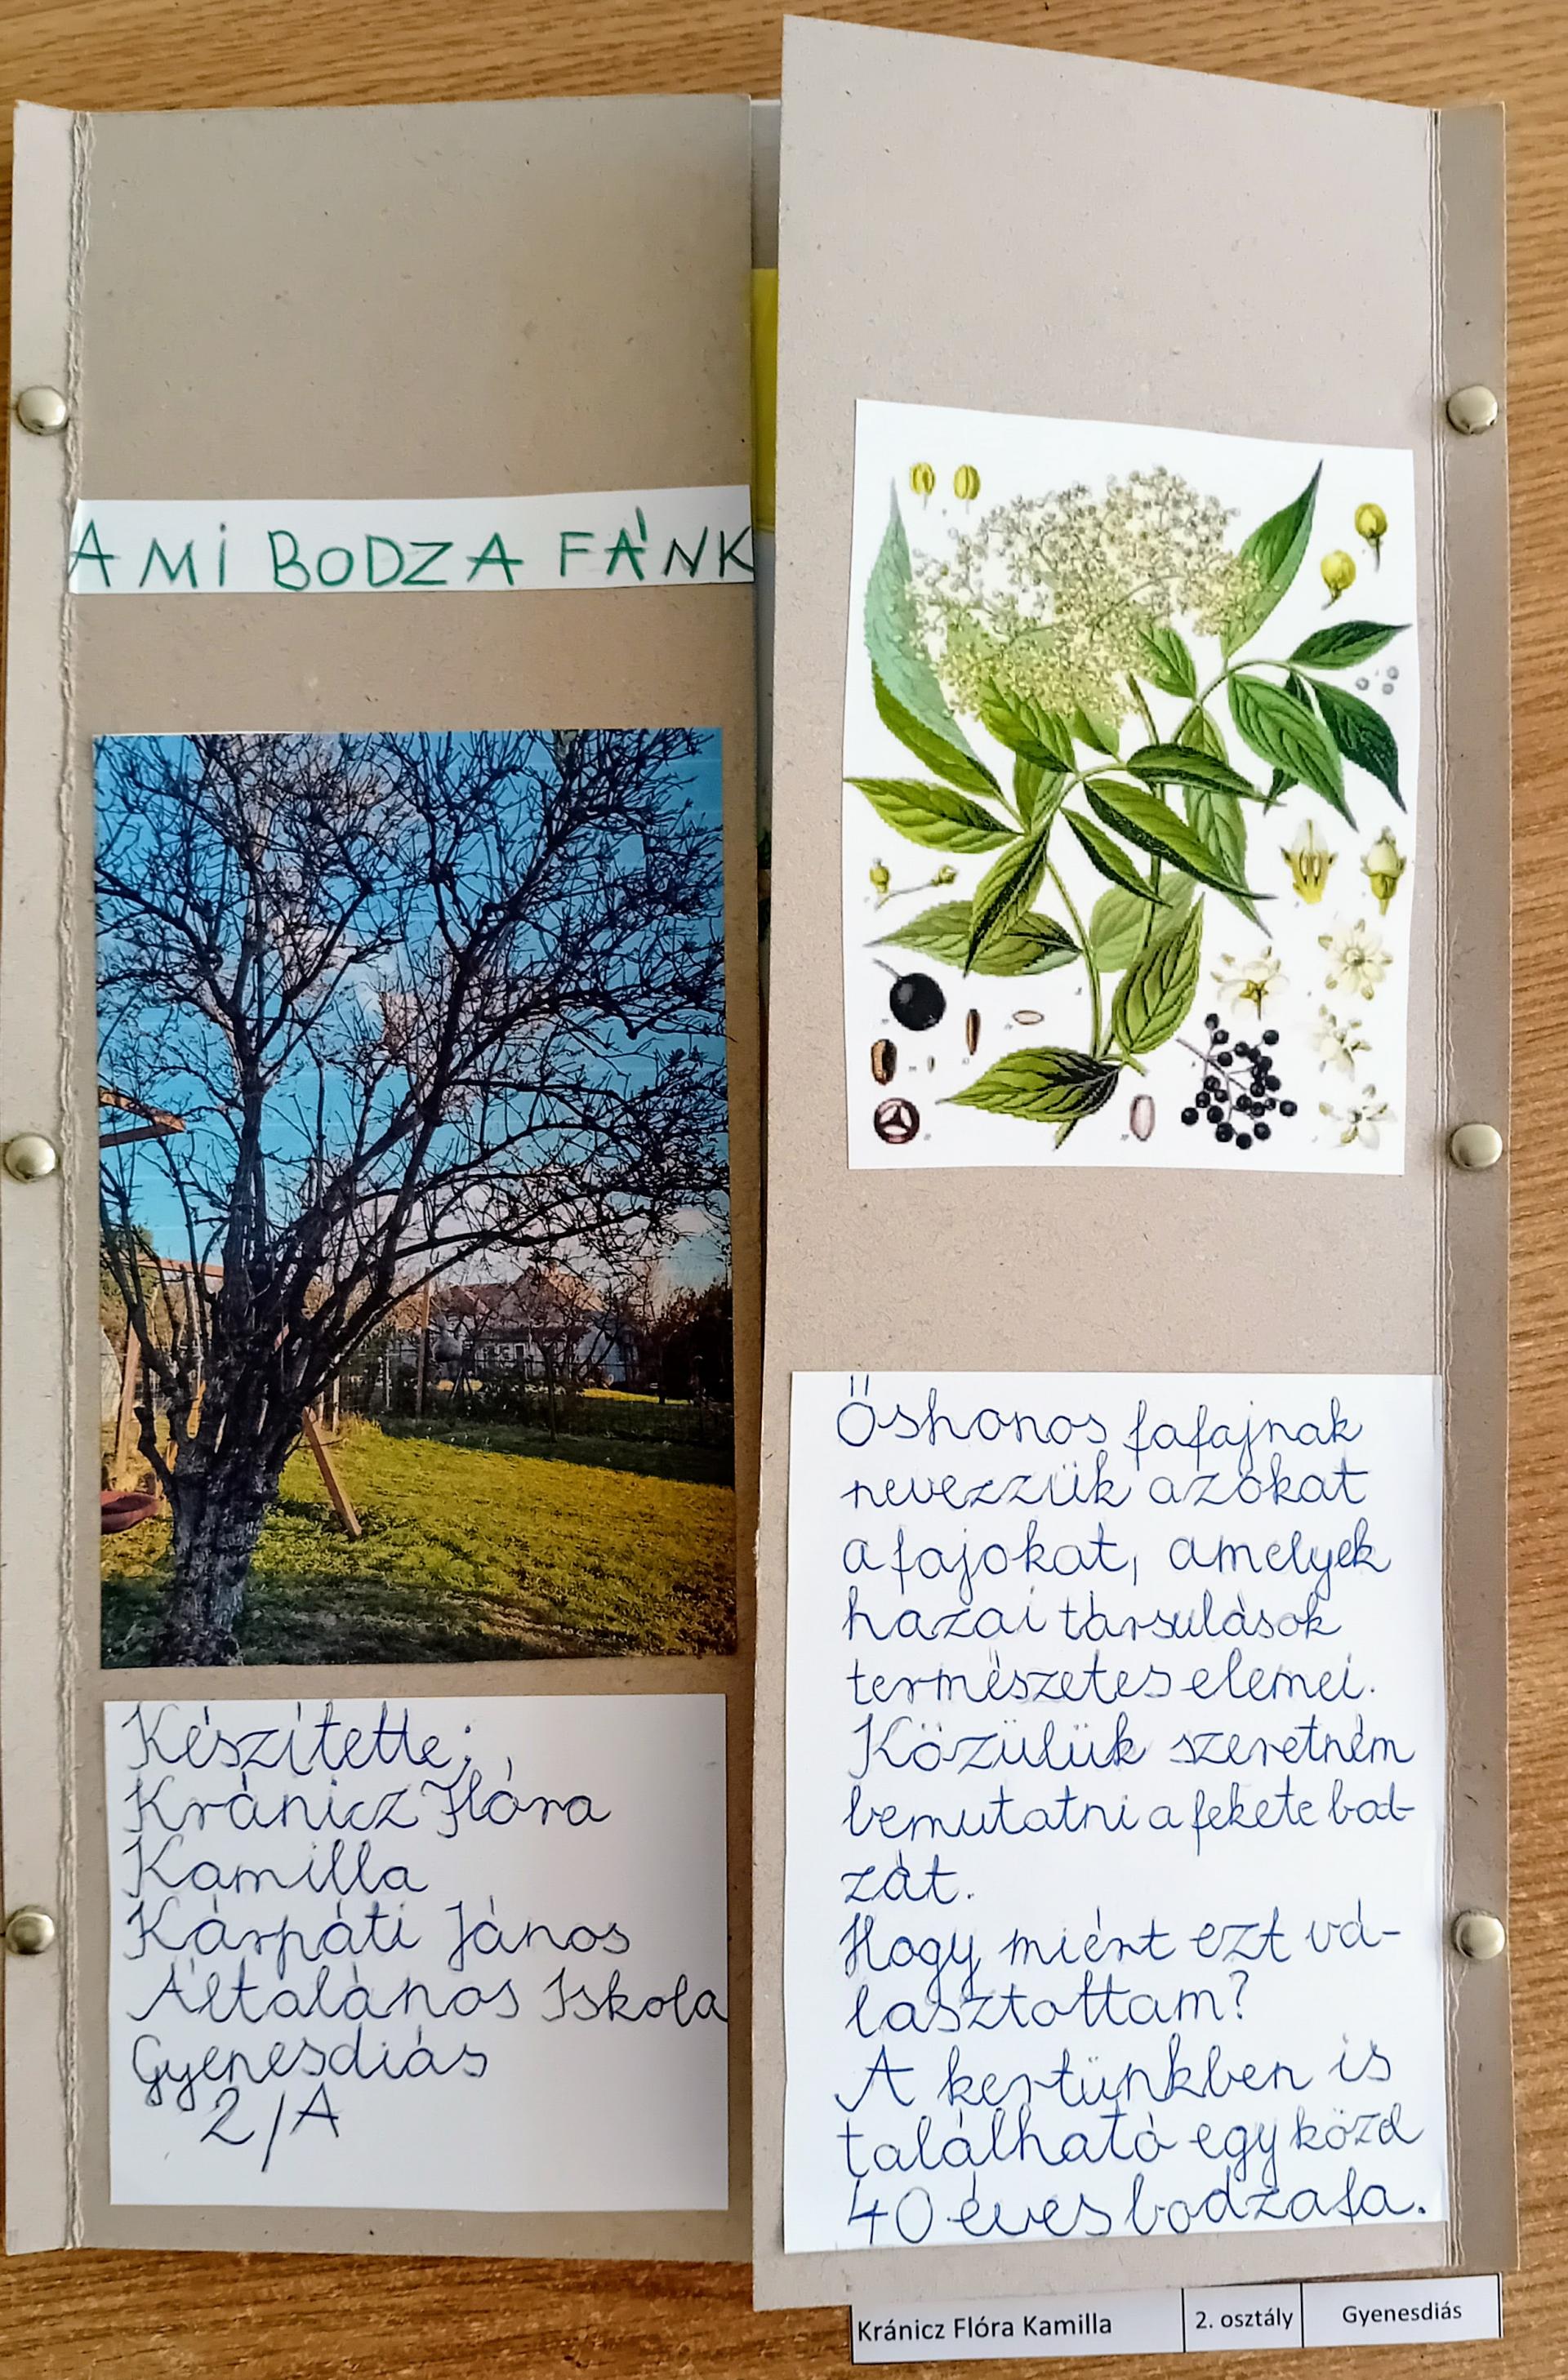 A MI BODZA FÁNK
Készítette:
Kránicz Flóra
Kamilla
Kárpáti János
Általános Iskola
Gyenesdiás
2/A
Őshonos fafajnak
nevezzük azokat
a fajokat, amelyek
hazai társulások
természetes elemei.
Közülük szeretném
bemutatni a fekete bod-
zát.
Hogy miért ezt vá-
lasztottam?
A kertünkben is
található egy közel
40 éves bodzafa.
Kránicz Flóra Kamilla 2. osztály Gyenesdiás